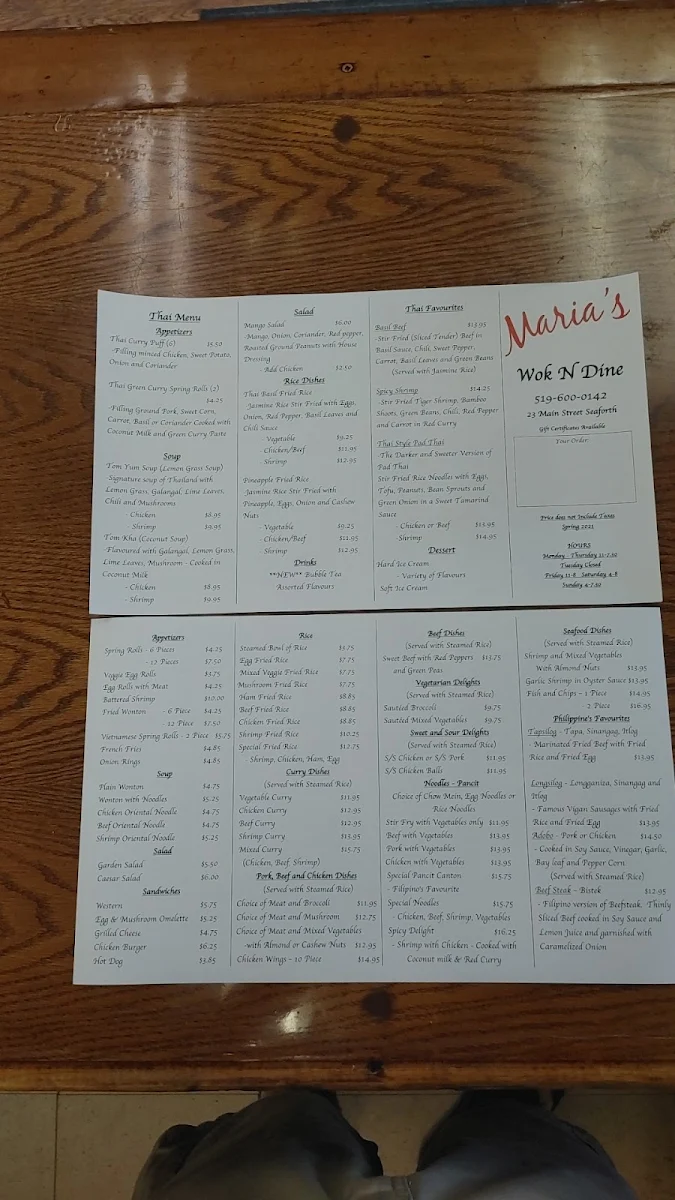 Thai Menu
Appetizers
Thai Curry Puff (6) $5.50
-Filling minced Chicken, Sweet Potato,
Onion and Coriander
Thai Green Curry Spring Rolls (2)
$4.25
-Filling Ground Pork, Sweet Corn,
Carrot, Basil or Coriander Cooked with
Coconut Milk and Green Curry Paste
Soup
Tom Yum Soup (Lemon Grass Soup)
Signature soup of Thailand with
Lemon Grass, Galangal, Lime Leaves,
Chili and Mushrooms
- Chicken $8.95
- Shrimp $9.95
Tom Kha (Coconut Soup)
-Flavoured with Galangal, Lemon Grass,
Lime Leaves, Mushroom - Cooked in
Coconut Milk
- Chicken $8.95
- Shrimp $9.95
Salad
Mango Salad $6.00
-Mango, Onion, Coriander, Red pepper,
Roasted Ground Peanuts with House
Dressing
- Add Chicken $2.50
Rice Dishes
Thai Basil Fried Rice
-Jasmine Rice Stir Fried with Eggs,
Onion, Red Pepper, Basil Leaves and
Chili Sauce
- Vegetable $9.25
- Chicken/Beef $11.95
- Shrimp $12.95
Pineapple Fried Rice
-Jasmine Rice Stir Fried with
Pineapple, Eggs, Onion and Cashow
Nuts
- Vegetable $9.25
- Chicken/Beef $11.95
- Shrimp $12.95
Drinks
**NEW** Bubble Tea
Assorted Flavours
Thai Favourites
Basil Beef $13.95
- Stir Fried (Sliced Tender) Beef in
Basil Sauce, Chili, Sweet Pepper,
Carrot, Basil Leaves and Green Beans
(Served with Jasmine Rice)
Spicy Shrimp $14.25
- Stir Fried Tiger Shrimp, Bamboo
Shoots, Green Beans, Chili, Red Pepper
and Carrot in Red Curry
Thai Style Pad Thai
-The Darker and Sweeter Version of
Pad Thai
Stir Fried Rice Noodles with Eggs,
Tofu, Peanuts, Bean Sprouts and
Green Onion in a Sweet Tamarind
Sauce
- Chicken or Beef $13.95
- Shrimp $14.95
Dessert
Hard Ice Cream
- Variety of Flavours
Soft Ice Cream
Maria's
Wok N Dine
519-600-0142
23 Main Street Seaforth
Gift Certificates Available
Your Order:
Price does not Include Taxes
Spring 2021
HOURS
Monday - Thursday 11-7:30
Tuesday Closed
Friday 11-8 Saturday 4-8
Sunday 4-7:30
Appetizers
Spring Rolls - 6 Pieces $4.25
- 12 Pieces $7.50
Veggie Egg Rolls $3.75
Egg Rolls with Meat $4.25
Battered Shrimp $10.00
Fried Wonton - 6 Piece $4.25
- 12 Piece $7.50
Vietnamese Spring Rolls - 2 Piece $5.75
French Fries $4.85
Onion Rings $4.85
Soup
Plain Wonton $4.75
Wonton with Noodles $5.25
Chicken Oriental Noodle $4.75
Beef Oriental Noodle $4.75
Shrimp Oriental Noodle $5.25
Salad
Garden Salad $5.50
Caesar Salad $6.00
Sandwiches
Western $5.75
Egg & Mushroom Omelette $5.25
Grilled Cheese $4.75
Chicken Burger $6.25
Hot Dog $3.85
Rice
Steamed Bowl of Rice $3.75
Egg Fried Rice $7.75
Mixed Veggie Fried Rice $7.75
Mushroom Fried Rice $7.75
Ham Fried Rice $8.85
Beef Fried Rice $8.85
Chicken Fried Rice $8.85
Shrimp Fried Rice $10.25
Special Fried Rice $12.75
- Shrimp, Chicken, Ham, Egg
Curry Dishes
(Served with Steamed Rice)
Vegetable Curry $11.95
Chicken Curry $12.95
Beef Curry $12.95
Shrimp Curry $13.95
Mixed Curry $15.75
(Chicken, Beef, Shrimp)
Pork, Beef and Chicken Dishes
(Served with Steamed Rice)
Choice of Meat and Broccoli $11.95
Choice of Meat and Mushroom $12.75
Choice of Meat and Mixed Vegetables
-with Almond or Cashew Nuts $12.95
Chicken Wings - 10 Piece $14.95
Beef Dishes
(Served with Steamed Rice)
Sweet Beef with Red Peppers $13.75
and Green Peas
Vegetarian Delights
(Served with Steamed Rice)
Sautéed Broccoli $9.75
Sautéed Mixed Vegetables $9.75
Sweet and Sour Delights
(Served with Steamed Rice)
S/S Chicken or S/S Pork $11.95
S/S Chicken Balls $11.95
Noodles - Pancit
Choice of Chow Mein, Egg Noodles or
Rice Noodles
Stir Fry with Vegetables only $11.95
Beef with Vegetables $13.95
Pork with Vegetables $13.95
Chicken with Vegetables $13.95
Special Pancit Canton $15.75
- Filipino's Favourite
Special Noodles $15.75
- Chicken, Beef, Shrimp, Vegetables
Spicy Delight $16.25
- Shrimp with Chicken - Cooked with
Coconut milk & Red Curry
Seafood Dishes
(Served with Steamed Rice)
Shrimp and Mixed Vegetables
With Almond Nuts $13.95
Garlic Shrimp in Oyster Sauce $13.95
Fish and Chips - 1 Piece $14.95
- 2 Piece $16.95
Philippine's Favourites
Tapsilog - Tapa, Sinangag, Itlog
- Marinated Fried Beef with Fried
Rice and Fried Egg $13.95
Longsilog - Longganiza, Sinangag and
Itlog
- Famous Vigan Sausages with Fried
Rice and Fried Egg $13.95
Adobo - Pork or Chicken $14.50
- Cooked in Soy Sauce, Vinegar, Garlic,
Bay leaf and Pepper Corn
(Served with Steamed Rice)
Beef Steak - Bistek $12.95
- Filipino version of Beefsteak. Thinly
Sliced Beef cooked in Soy Sauce and
Lemon Juice and garnished with
Caramelized Onion